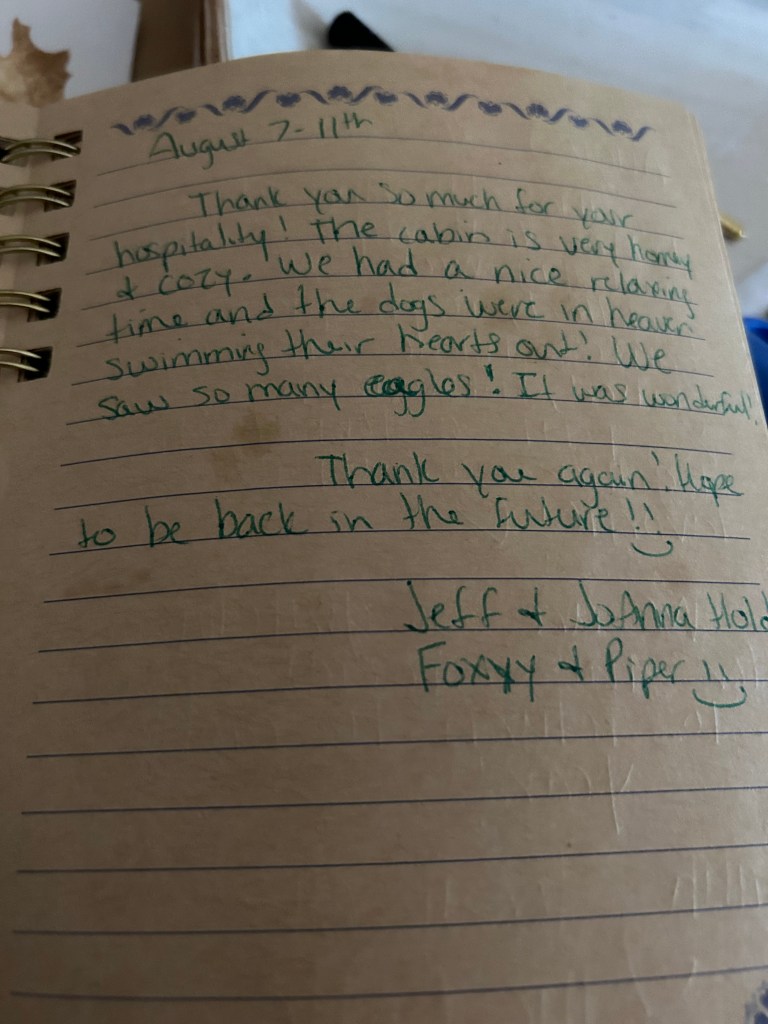 August 7-11th
Thank you so much for your
hospitality! The cabin is very homey
& cozy. We had a nice relaxing
time and the dogs were in heaven
swimming their hearts out! We
saw so many eagles! It was wonderful!
Thank you again! Hope
to be back in the future!!
Jeff & JoAnna Hold
Foxyy & Piper !!